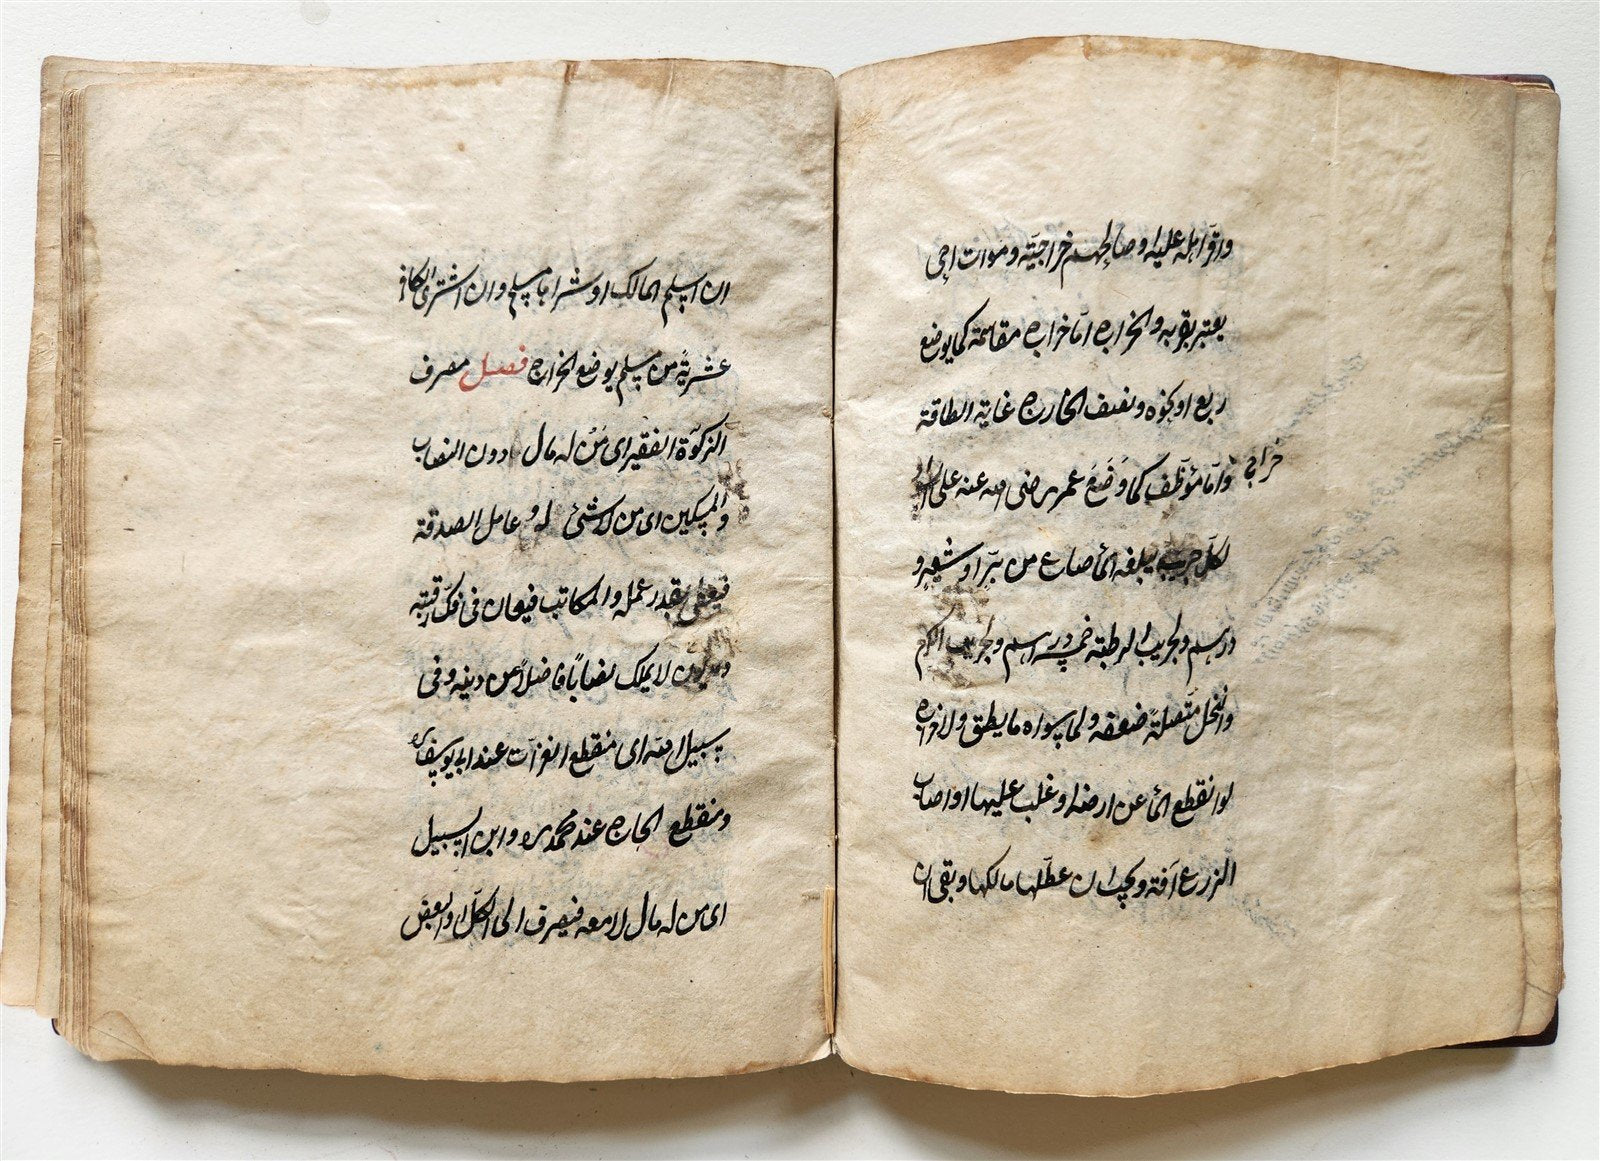 واقرّ اهله عليه او صالحهم خراجيّة وموات احى
يعتبر بقربه والخراج امّا خراج مقاسمة كما يوضع
ربع او نحوه ونصف الخارج غاية الطاقة
وامّا موظّف كما وَضَعَ عمر رضى الله عنه على
خراج
لكلّ جريب يبلغه الماء صاع من برّ او شعير و
درهم ولجريب الرطبة خمسة دراهم ولجريب الكرم
والنخل متّصلة ضعفه ولما سواه ما يطيق ولا خراج
لو انقطع الماء عن ارضه او غلب عليها او اصاب
الزرع آفة ويجب ان عطّلها مالكها ويبقى ان
ان اسلم المالك او شراها مسلم وان اشترى الكافر
عشريّة من مسلم يوضع الخراج فصل مصرف
الزكوة الفقير اى مَنْ له مال دون النصاب
والمسكين اى من لا شئ له و عامل الصدقة
فيعطى بقدر عمله والمكاتب فيعان فى فكّ رقبته
ومديون لا يملك نصابًا فاضلًا من دينه وفى
سبيل الله اى منقطع الغزاة عند ابى يوسف ره
ومنقطع الحاج عند محمد ره وابن السبيل
اى من له مال لا معه فيصرف الى الكلّ او البعض